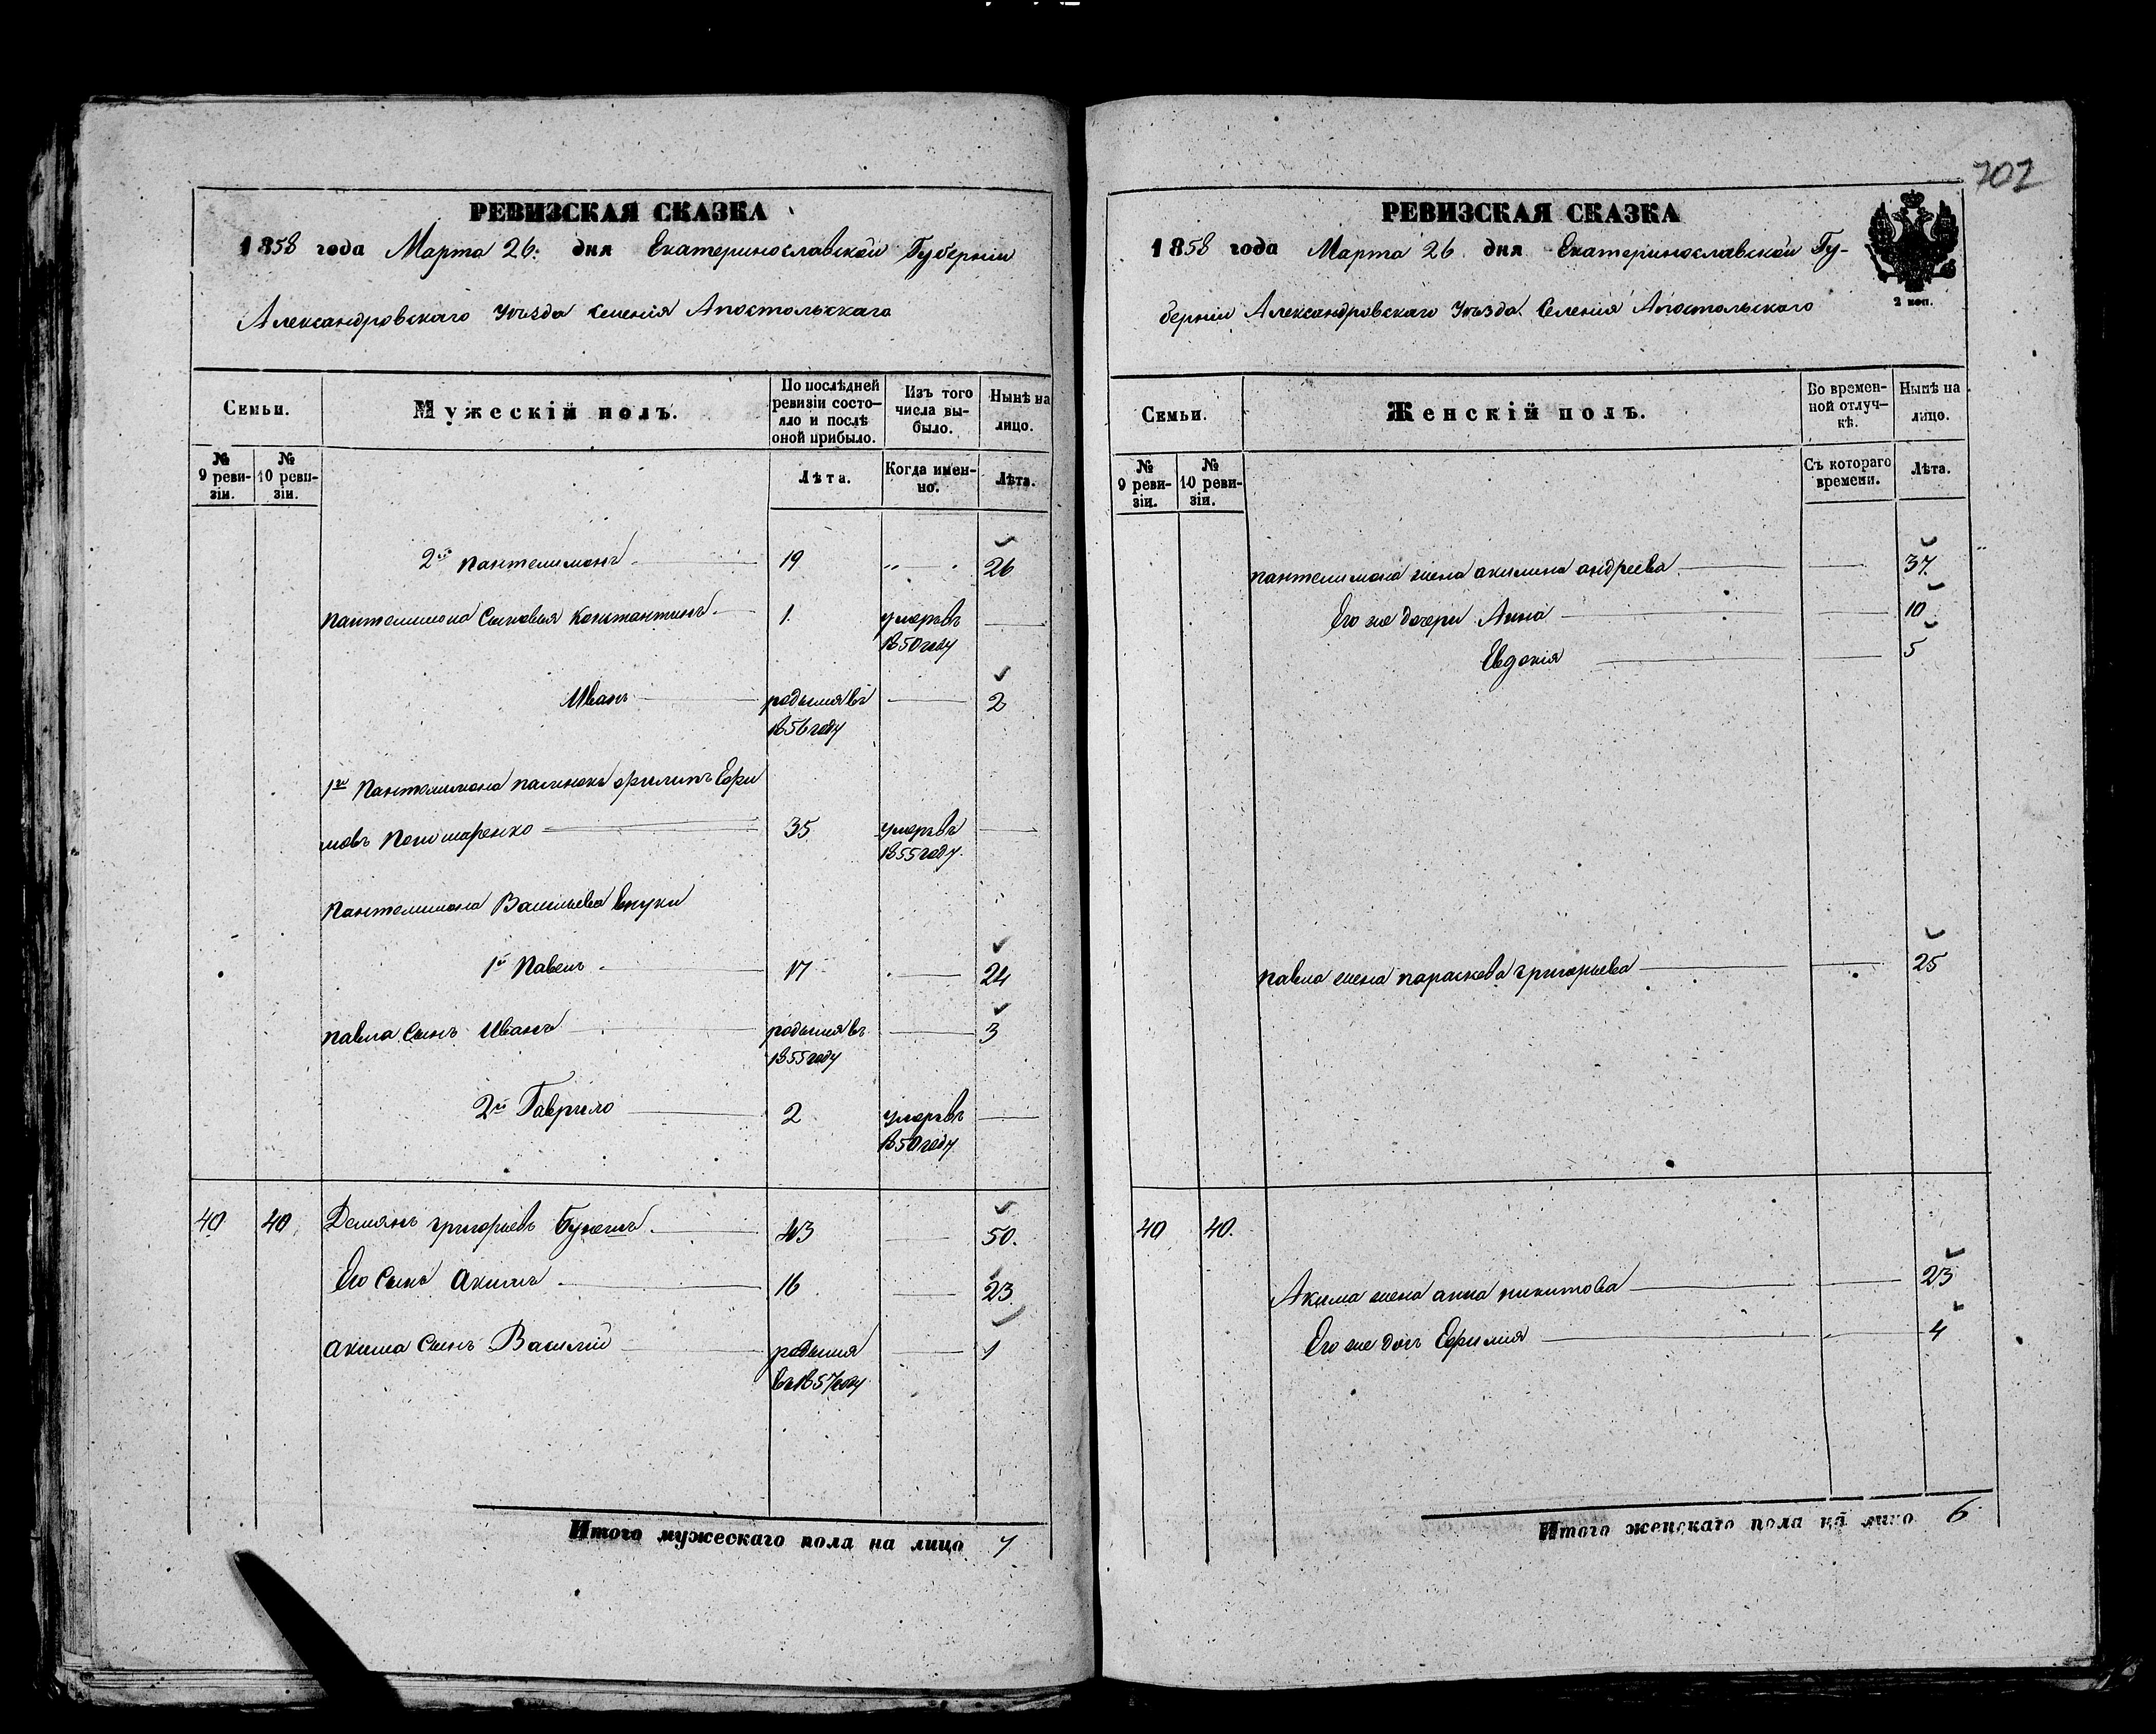 702
РЕВИЗСКАЯ СКАЗКА
1858 года Марта 26. дня Екатеринославской Губерніи
Александровскаго Уѣзда Селенія Апостольскаго
Семьи.
Мужескій полъ.
По послѣдней ревизіи состояло и послѣ оной прибыло.
Изъ того числа выбыло.
Нынѣ на лицо.
№ 9 ревизіи.
№ 10 ревизіи.
Лѣта.
Когда именно.
Лѣта.
2й Пантелимонъ 19 26
Пантелимона Сыновья Константинъ 1. умеръ въ
1850 году
Иванъ родился въ 2
1856 году
1го Пантелимона пасинокъ Филипъ Ефи
мовъ Пономаренко 35 умеръ въ
1855 году.
Пантелимона Васильева внуки
1й Павелъ 17 24
Павла Сынъ Иванъ родился въ 3
1855 году
2й Гаврило 2 умеръ въ
1850 году
40 40 Демянъ Григорьевъ 43 50.
Его Сынъ Акимъ 16 23
Акима Сынъ Василій родился 1
въ 1857 году
Итого мужескаго пола на лицо 7
РЕВИЗСКАЯ СКАЗКА
1858 года Марта 26 дня Екатеринославской Гу-
берніи Александровскаго Уѣзда Селенія Апостольскаго
2 коп.
Семьи.
Женскій полъ.
Во временной отлучкѣ.
Нынѣ на лицо.
№ 9 ревизіи.
№ 10 ревизіи.
Съ котораго времени.
Лѣта.
Пантелимона жена акилина андреева 37.
Его же дочери Анна 10
Евдокія 5
Павла жена параскева григорьева 25
40 40.
Акима жена анна никитова 23
Его же дочь Ефимія 4
Итого женскаго пола на лицо 6